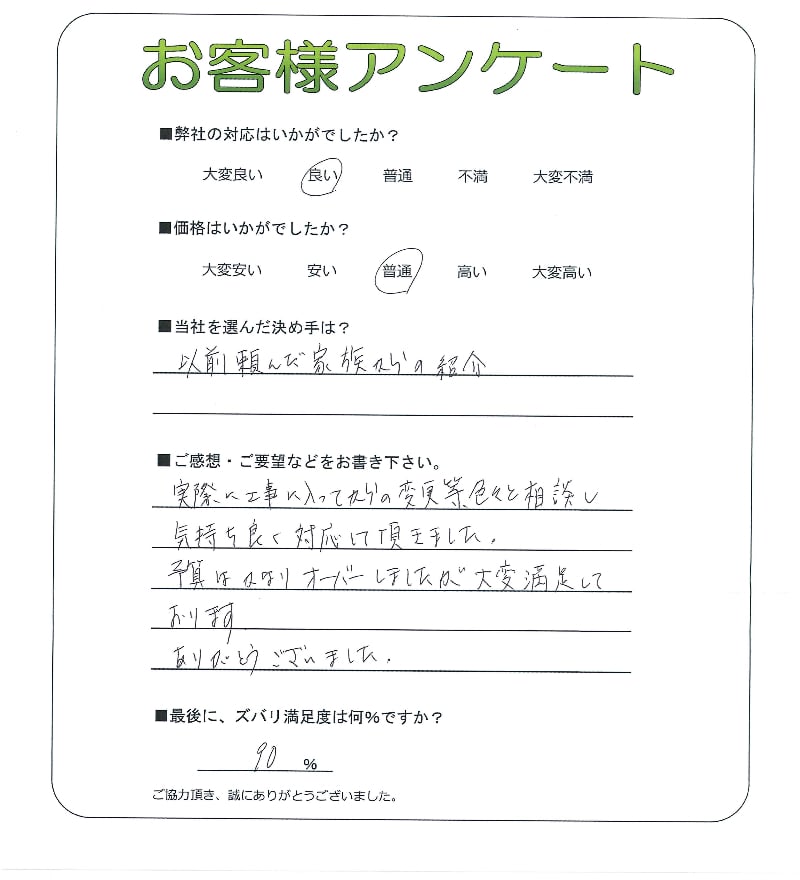 お客様アンケート
■弊社の対応はいかがでしたか?
大変良い 良い 普通 不満 大変不満
■価格はいかがでしたか?
大変安い 安い 普通 高い 大変高い
■当社を選んだ決め手は?
以前頼んだ家族からの紹介
■ご感想・ご要望などをお書き下さい。
実際に工事に入ってからの変更等色々と相談し
気持ち良く対応して頂きました。
予算はかなりオーバーしましたが大変満足して
おります
ありがとうございました。
■最後に、ズバリ満足度は何%ですか?
90 %
ご協力頂き、誠にありがとうございました。